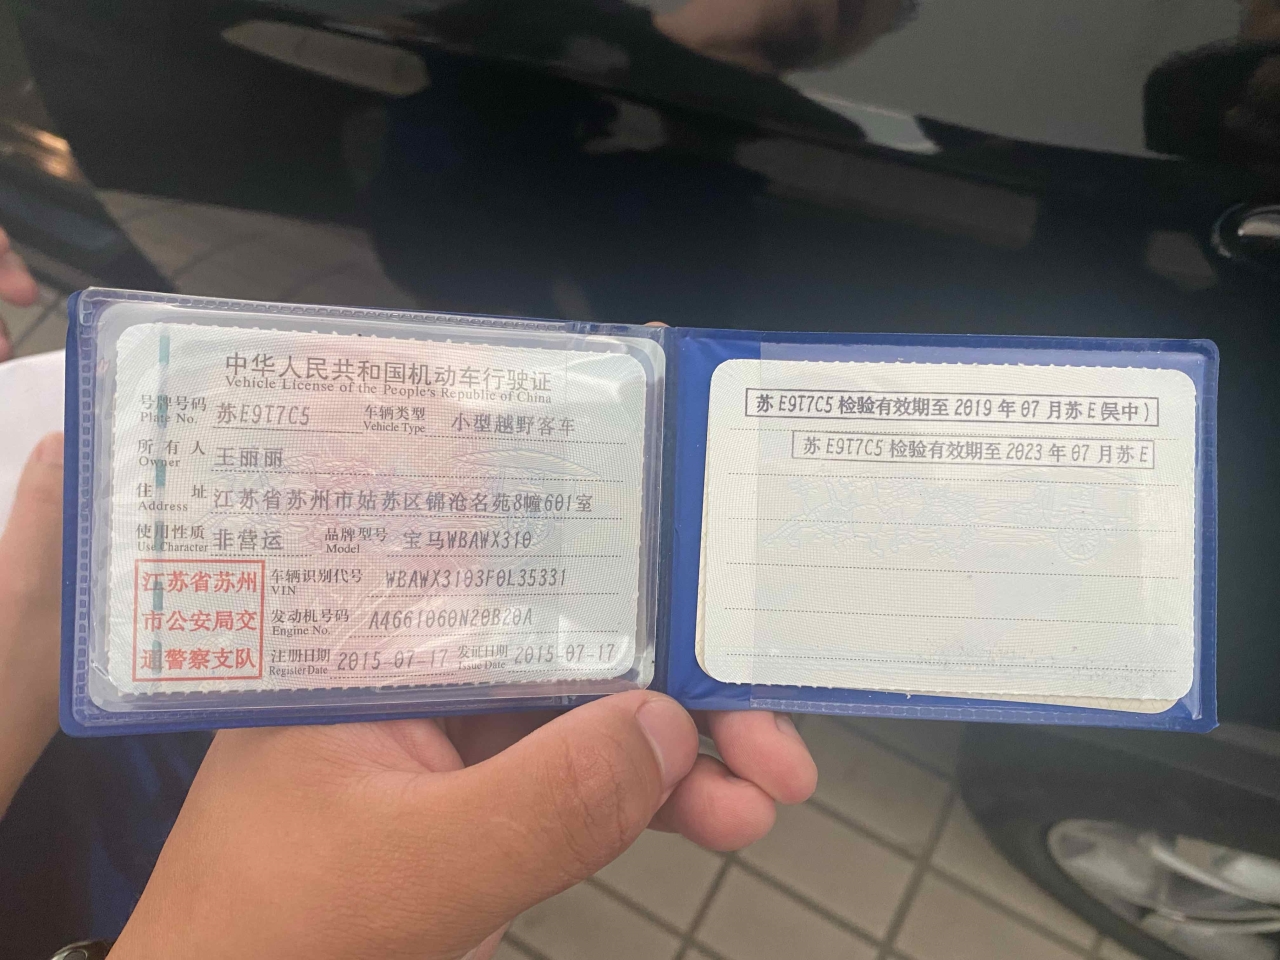 中华人民共和国机动车行驶证
Vehicle License of the People's Republic of China
号牌号码 苏E9T7C5 车辆类型 小型越野客车
Plate No. Vehicle Type
所有人 王丽丽
Owner
住址 江苏省苏州市姑苏区锦沧名苑8幢601室
Address
使用性质 非营运 品牌型号 宝马WBAWX310
Use Character Model
江苏省苏州
市公安局交
通警察支队
车辆识别代号 WBAWX3103F0L35331
VIN
发动机号码 A4661060N20B20A
Engine No.
注册日期 2015-07-17 发证日期 2015-07-17
Register Date Issue Date
苏E9T7C5 检验有效期至 2019 年 07 月苏E(吴中)
苏E9T7C5 检验有效期至 2023 年 07 月苏E